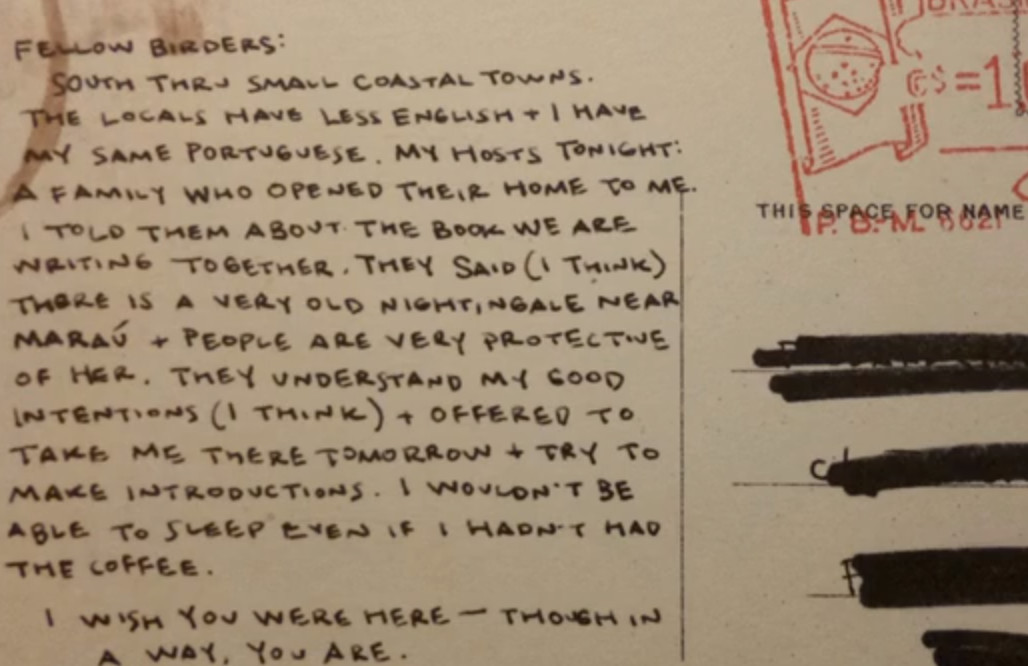 FELLOW BIRDERS:
SOUTH THRU SMALL COASTAL TOWNS.
THE LOCALS HAVE LESS ENGLISH + I HAVE
MY SAME PORTUGUESE. MY HOSTS TONIGHT:
A FAMILY WHO OPENED THEIR HOME TO ME.
I TOLD THEM ABOUT THE BOOK WE ARE
WRITING TOGETHER. THEY SAID (I THINK)
THERE IS A VERY OLD NIGHTINGALE NEAR
MARAÚ + PEOPLE ARE VERY PROTECTIVE
OF HER. THEY UNDERSTAND MY GOOD
INTENTIONS (I THINK) + OFFERED TO
TAKE ME THERE TOMORROW + TRY TO
MAKE INTRODUCTIONS. I WOULDN'T BE
ABLE TO SLEEP EVEN IF I HADN'T HAD
THE COFFEE.
I WISH YOU WERE HERE — THOUGH IN
A WAY, YOU ARE.
THIS SPACE FOR NAME
P. B. M. 6621